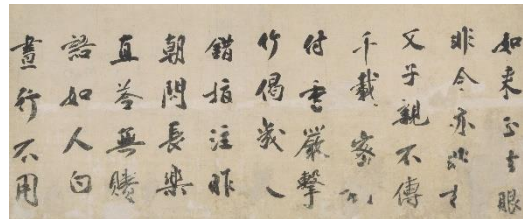 如来正法眼
非今亦非古
父子親不傳
千載密相
付香嚴擊
竹偈幾人
錯指注昨
朝問長樂
直答無賸
語如人白
晝行不用